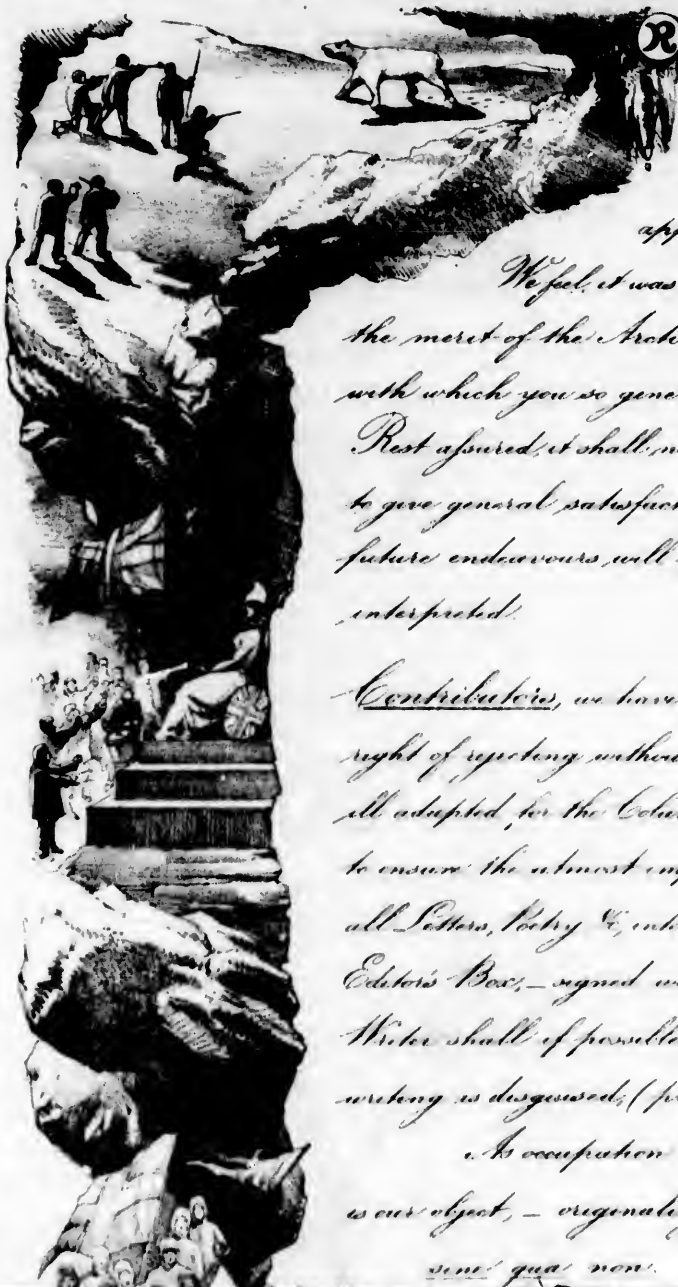 R
app
We feel, it was
the merit of the Arcti
with which you so gene
Rest assured, it shall n
to give general satisfac
future endeavours, will
interpreted.
Contributors, we have
right of rejecting withou
ill adapted, for the Colu
to ensure the utmost imp
all Letters, Poetry &c, int
Editor's Box, – signed w
Writer shall if possible
writing is disguised, (p
As occupation
is our object, – originali
sine qua non.